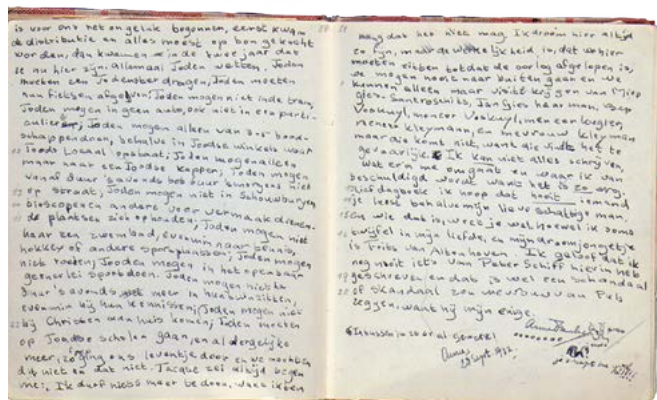 is voor ons het ongeluk begonnen, eerst kwam
de distributie en alles moest op bon gekocht
worden, dan kwamen in de twee jaar dat
ze nu hier zijn allemaal Joden wetten. Joden
moeten een Jodenster dragen; Joden moeten
hun fietsen afgeven; Joden mogen niet in de tram;
Joden mogen in geen auto, ook niet in een parti-
culiere; Joden mogen alleen van 3-5 bood-
schappen doen, behalve in Joodse winkels waar
Joods Locaal opstaat; Joden mogen alleen
maar naar een Joodse kapper; Joden mogen
vanaf 8 uur 's avonds tot 6 uur 's morgens niet
op straat; Joden mogen niet in Schouwburgen
bioscopen en andere voor vermaak dienen-
de plaatsen zich ophouden; Joden mogen niet
naar een zwembad, evenmin naar tennis,
hokkey of andere sportplaatsen; Joden mogen
niet roeien; Jooden mogen in het openbaar
generlei sport doen. Joden mogen niet na
8 uur 's avonds niet meer in hun tuin zitten,
evenmin bij hun kennissen; Joden mogen niet
bij Christen aan huis komen; Joden moeten
op Joodse scholen gaan, en al dergelijke
meer, zo ging ons leventje door en we mochten
dit niet en dat niet. Jacque zei altijd tegen
me; Ik durf niets meer te doen, want ik ben
bang dat het niet mag. Ik droom hier altijd
zo fijn, maar de werkelijkheid is, dat we hier
moeten zitten tot dat de oorlog afgelopen is,
we mogen nooit naar buiten gaan en we
kunnen alleen maar visite krijgen van Miep
Gies-Santroschits, Jan Gies haar man,
Voskuyl, meneer Voskuyl, meneer Kugler,
meneer Kleymann, en mevrouw Kleyman
maar die komt niet, want die vindt het te
gevaarlijk. Ik kan niet alles schrijven
wat er in me omgaat en waar ik van
beschuldigd wordt want het is zo erg.
lief dagboek ik hoop dat nooit iemand
je leest behalve mijn lieve schattige man.
En wie dat is, weet je wel hoewel ik soms
twijfel in mijn liefde, en mijn droomjongetje
is Frits van Altenhoven. Ik geloof dat ik
nog nooit iets van Peter Schiff hier in heb
geschreven en dat is wel een schandaal
of skandaal zou mevrouw van Pels
zeggen, want hij mijn enige.
Anne
28 sept. 1942.